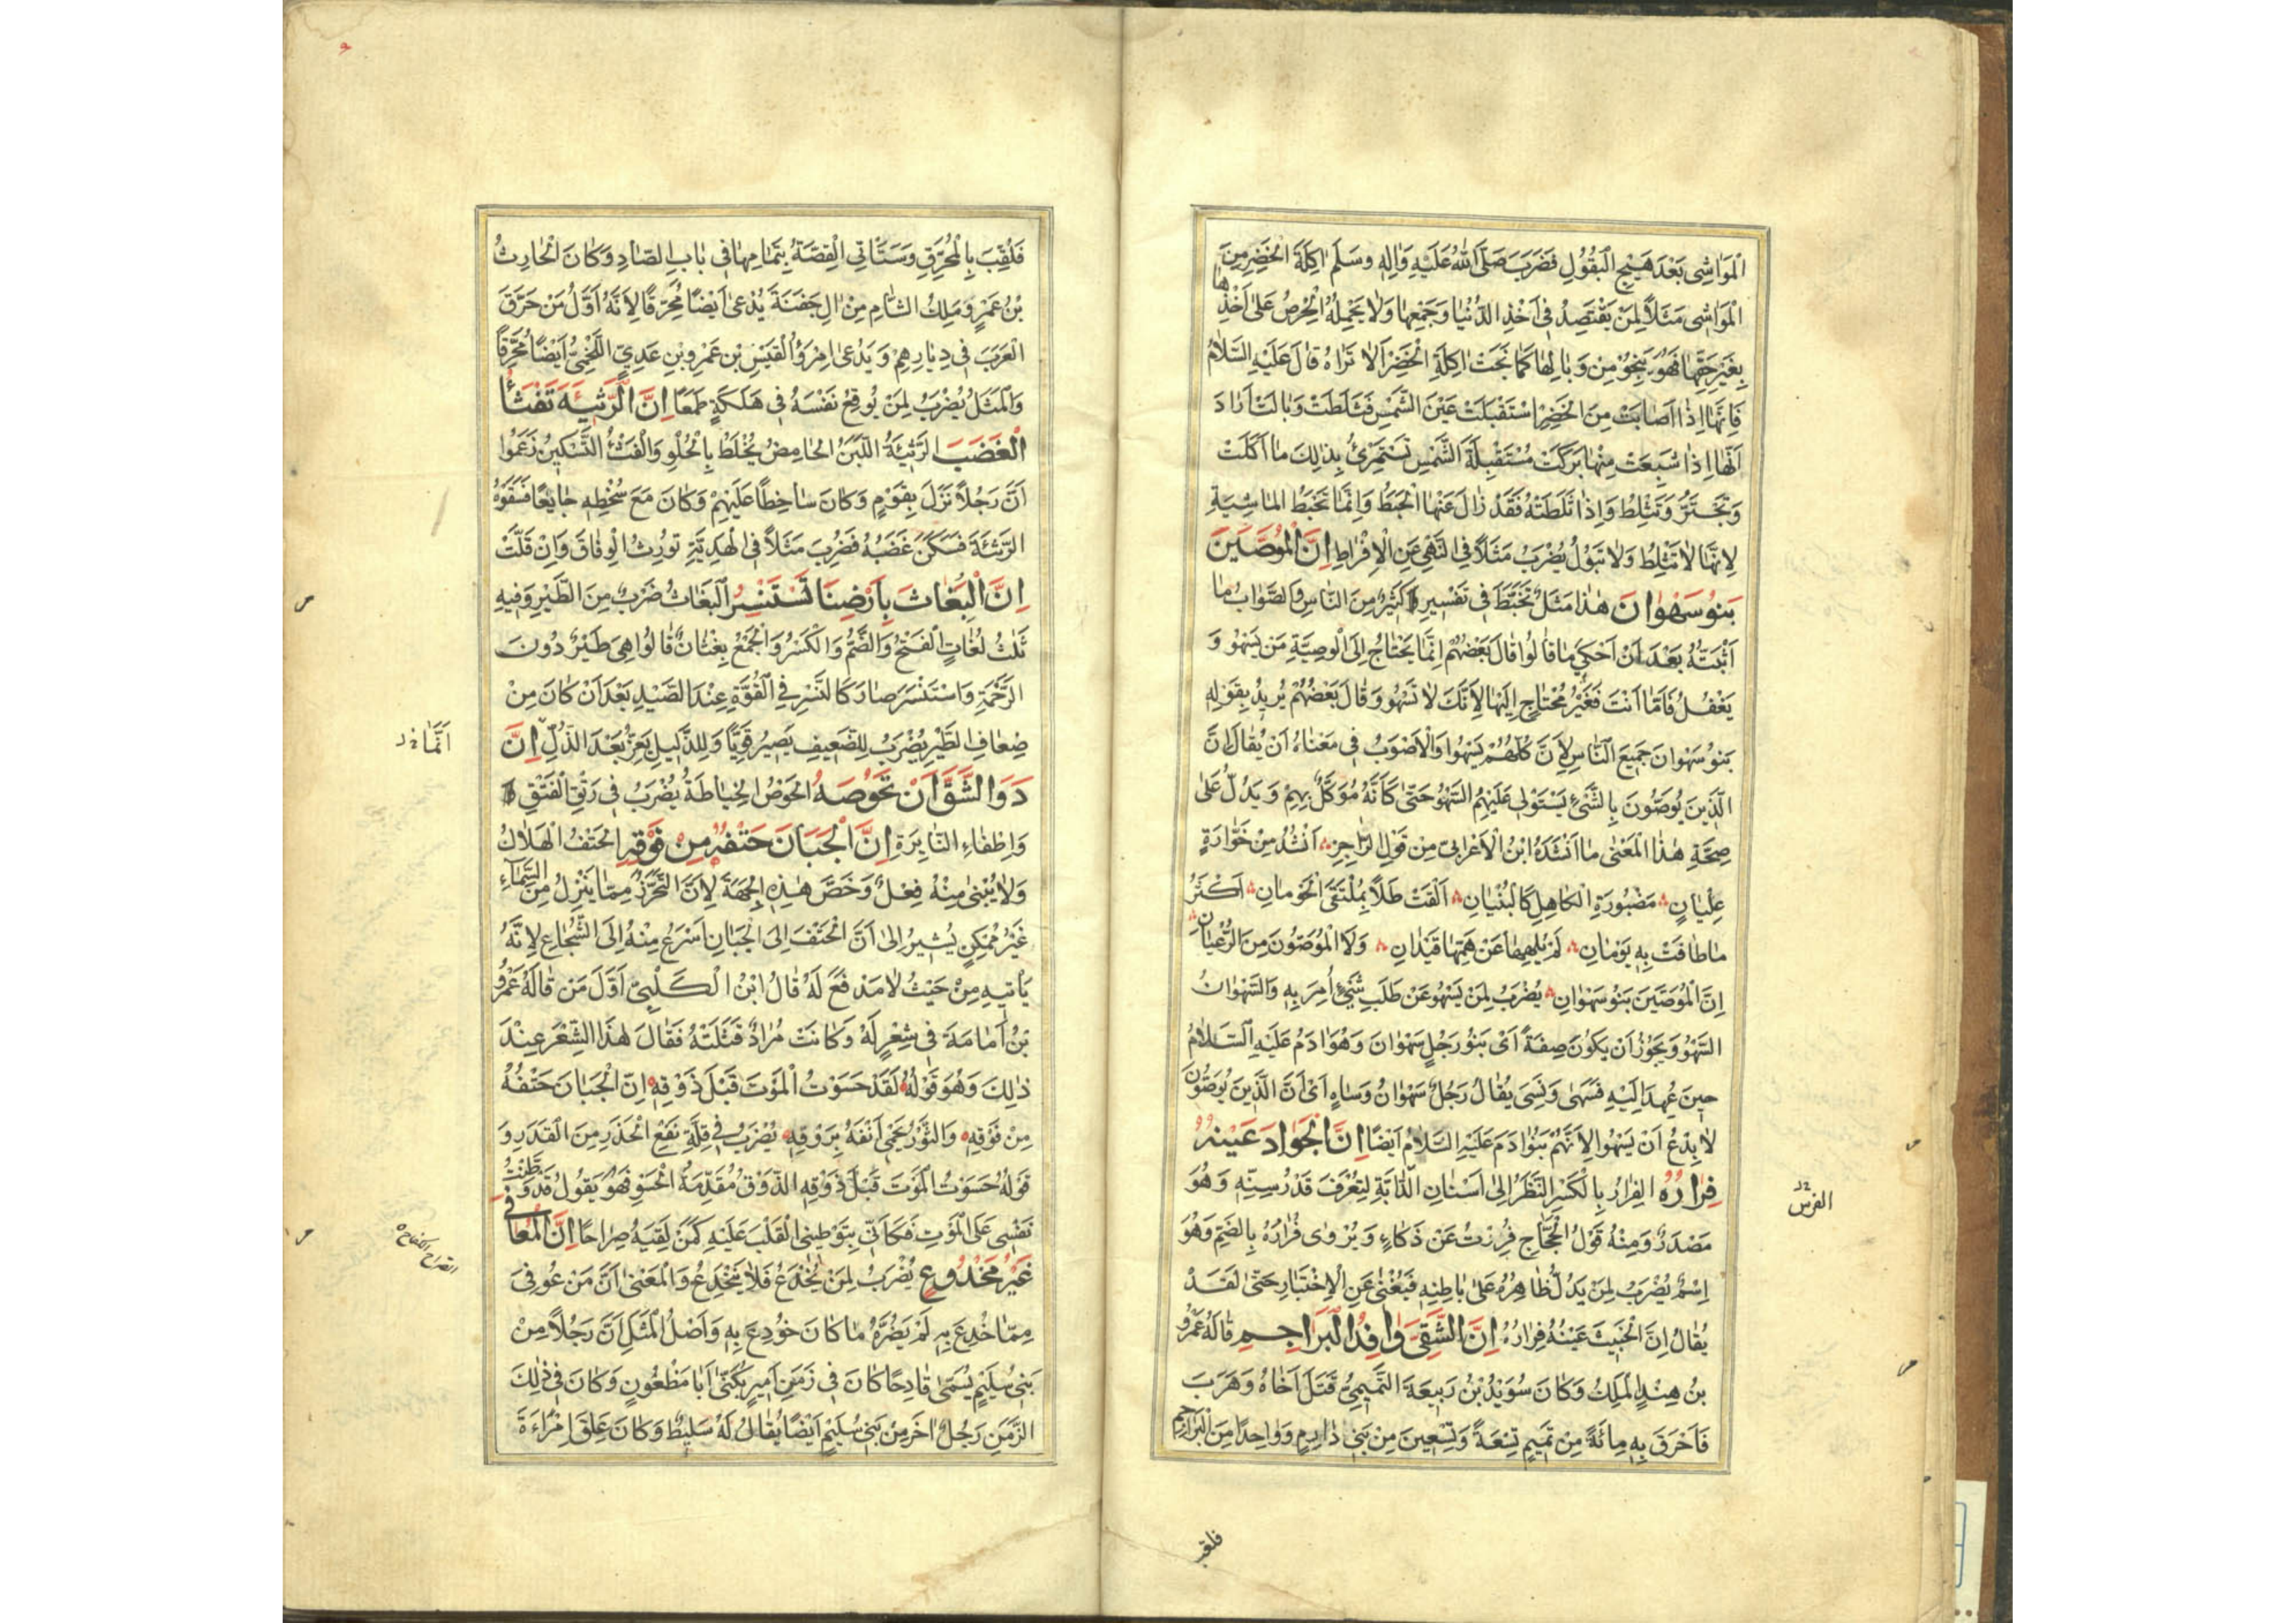 المَوَاشِى بَعْدَ هَيْجِ الْبُقُولِ فَضَرَبَ صَلَّى اللهُ عَلَيْهِ وَاٰلِهِ وَسَلَّمَ اٰكِلَةَ الْخَضِرِ مِنَ
الْمَوَاشِى مَثَلًا لِمَنْ يَقْتَصِدُ فِى اَخْذِ الدُّنْيَا وَجَمْعِهَا وَلَا يَحْمِلُهُ الْحِرْصُ عَلٰى اَخْذِهَا
بِغَيْرِ حَقِّهَا فَهُوَ يَنْجُوْ مِنْ وَبَالِهَا كَمَا نَجَتْ اٰكِلَةُ الْخَضِرِ اَلَا تَرَاهُ قَالَ عَلَيْهِ السَّلَامُ
فَاِنَّهَا اِذَا اَصَابَتْ مِنَ الْخَضِرِ اسْتَقْبَلَتْ عَيْنَ الشَّمْسِ فَثَلَطَتْ وَبَالَتْ اَرَادَ
اَنَّهَا اِذَا شَبِعَتْ مِنْهَا بَرَكَتْ مُسْتَقْبِلَةَ الشَّمْسِ تَسْتَمْرِئُ بِذٰلِكَ مَا اَكَلَتْ
وَتَجْتَرُّ وَتَثْلِطُ وَاِذَا ثَلَطَتْهُ فَقَدْ زَالَ عَنْهَا الْحَبَطُ وَاِنَّمَا تَحْبَطُ المَاشِيَةِ
لِاَنَّهَا لَا تَثْلِطُ وَلَا تَبُوْلُ يُضْرَبُ مَثَلًا فِى النَّهْىِ عَنِ الْاِفْرَاطِ اِنَّ الْمُوَصَّيْنَ
بَنُوْ سَهْوَانَ هٰذَا مَثَلٌ تَخَبَّطَ فِى تَفْسِيرِهِ كَثِيرٌ مِنَ النَّاسِ وَالصَّوَابُ مَا
اَثْبَتُّهُ بَعْدَ اَنْ اَحْكِىَ مَا قَالُوا قَالَ بَعْضُهُمْ اِنَّمَا يَحْتَاجُ اِلَى الْوَصِيَّةِ مَنْ يَسْهُو وَ
يَغْفُلُ فَاَمَّا اَنْتَ فَغَيْرُ مُحْتَاجٍ اِلَيْهَا لِاَنَّكَ لَا تَسْهُو وَقَالَ بَعْضُهُمْ يُرِيدُ بِقَوْلِهِ
بَنُوْ سَهْوَانَ جَمِيعَ النَّاسِ لِاَنَّ كُلَّهُمْ يَسْهُوا وَالْاَصْوَبُ فِى مَعْنَاهُ اَنْ يُقَالَ اِنَّ
الَّذِينَ يُوَصَّوْنَ بِالشَّىْءِ يَسْتَوْلِى عَلَيْهِمُ السَّهْوُ حَتّٰى كَاَنَّهُ مُوَكَّلٌ بِهِمْ وَيَدُلُّ عَلٰى
صِحَّةِ هٰذَا الْمَعْنٰى مَا اَنْشَدَهُ ابْنُ الْاَعْرَابِىِّ مِنْ قَوْلِ الرَّاجِزِ اَنْشُدُ مِنْ خَوَّارَةٍ
عِلْيَانٍ مَضْبُورَةِ الْكَاهِلِ كَالْبُنْيَانِ اَلْقَتْ طَلًا بِمُلْتَقَى الْحَوْمَانِ اَكْثَرُ
مَا طَافَتْ بِهِ يَوْمَانِ لَمْ يُلْهِهَا عَنْ هَمِّهَا قَيْدَانِ وَلَا الْمُوَصَّوْنَ مِنَ الرُّعْيَانِ
اِنَّ الْمُوَصَّيْنَ بَنُوْ سَهْوَانِ يُضْرَبُ لِمَنْ يَسْهُو عَنْ طَلَبِ شَىْءٍ اُمِرَ بِهِ وَالسَّهْوَانُ
السَّهْوُ وَيَجُوزُ اَنْ يَكُونَ صِفَةً اَىْ بَنُو رَجُلٍ سَهْوَانَ وَهُوَ اٰدَمُ عَلَيْهِ السَّلَامُ
حِينَ عُهِدَ اِلَيْهِ فَسَهٰى وَنَسِىَ يُقَالُ رَجُلٌ سَهْوَانُ وَسَاهٍ اَىْ اَنَّ الَّذِينَ يُوَصَّوْنَ
لَا بِدْعَ اَنْ يَسْهُوا لِاَنَّهُمْ بَنُو اٰدَمَ عَلَيْهِ السَّلَامُ اَيْضًا اِنَّ الْجَوَادَ عَيْنُهُ
فِرَارُهُ الفِرَارُ بِالْكَسْرِ النَّظَرُ اِلٰى اَسْنَانِ الدَّابَّةِ لِتُعْرَفَ قَدْرُ سِنِّهِ وَهُوَ
مَصْدَرٌ وَمِنْهُ قَوْلُ الْحَجَّاجِ فُرِرْتُ عَنْ ذَكَاءٍ وَيُرْوٰى فُرَارُهُ بِالضَّمِّ وَهُوَ
اِسْمٌ يُضْرَبُ لِمَنْ يَدُلُّ ظَاهِرُهُ عَلٰى بَاطِنِهِ فَيُغْنٰى عَنِ الْاِخْتَبَارِ حَتّٰى لَقَدْ
يُقَالُ اِنَّ الْخَبِيثَ عَيْنُهُ فِرَارُهُ اِنَّ الشَّقِىَّ وَافِدُ الْبَرَاجِمِ قَالَهُ عَمْرُو
بنُ هِنْدٍ المَلِكُ وَكَانَ سُوَيْدُ بْنُ رَبِيعَةَ التَّمِيمِىُّ قَتَلَ اَخَاهُ وَهَرَبَ
فَاَحْرَقَ بِهِ مِائَةً مِنْ تَمِيمٍ تِسْعَةً وَتِسْعِينَ مِنْ بَنِى دَارِمٍ وَوَاحِدًا مِنَ الْبَرَاجِمِ
الفرس
فلقب
فَلُقِّبَ بِالْمُحَرِّقِ وَسَتَأْتِى الْقِصَّةُ بِتَمَامِهَا فِى بَابِ الصَّادِ وَكَانَ الْحَارِثُ
بْنُ عَمْرٍو مَلِكُ الشَّامِ مِنْ اٰلِ جَفْنَةَ يُدْعٰى اَيْضًا مُحَرِّقًا لِاَنَّهُ اَوَّلُ مَنْ حَرَّقَ
الْعَرَبَ فِى دِيَارِهِمْ وَيُدْعٰى امْرُؤُ الْقَيْسِ بْنِ عَمْرِو بْنِ عَدِىٍّ اللَّخْمِىُّ اَيْضًا مُحَرِّقًا
وَالْمَثَلُ يُضْرَبُ لِمَنْ يُوقِعُ نَفْسَهُ فِى هَلَكَةٍ طَمَعًا اِنَّ الرَّثِيئَةَ تَفْثَأُ
الْغَضَبَ الرَّثِيئَةُ اللَّبَنُ الْحَامِضُ يُخْلَطُ بِالْحُلْوِ وَالْفَثْءُ التَّسْكِينُ زَعَمُوا
اَنَّ رَجُلًا نَزَلَ بِقَوْمٍ وَكَانَ سَاخِطًا عَلَيْهِمْ وَكَانَ مَعَ سُخْطِهِ جَايِعًا فَسَقَوْهُ
الرَّثِيئَةَ فَسَكَنَ غَضَبُهُ فَضُرِبَ مَثَلًا فِى الْهَدِيَّةِ تُورِثُ الْوِفَاقَ وَاِنْ قَلَّتْ
اِنَّ الْبُغَاثَ بِاَرْضِنَا تَسْتَنْسِرُ اَلْبَغَاثُ ضَرْبٌ مِنَ الطَّيْرِ وَفِيهِ
ثَلٰثُ لُغَاتٍ الْفَتْحُ وَالضَّمُّ وَالْكَسْرُ وَالْجَمْعُ بِغْثَانٌ قَالُوا هِىَ طَيْرٌ دُونَ
الرَّخَمَةِ وَاسْتَنْسَرَ صَارَ كَالنَّسْرِ فِى الْقُوَّةِ عِنْدَ الصَّيْدِ بَعْدَ اَنْ كَانَ مِنْ
ضِعَافِ الطَّيْرِ يُضْرَبُ لِلضَّعِيفِ يَصِيرُ قَوِيًّا وَلِلذَّلِيلِ يَعِزُّ بَعْدَ الذُّلِّ اِنَّ
دَوَا الشَّقِّ اَنْ تَحُوصَهُ الحَوْصُ الْخِيَاطَةُ يُضْرَبُ فِى رَتْقِ الْفَتْقِ
وَاِطْفَاءِ النَّايِرَةِ اِنَّ الْجَبَانَ حَتْفُهُ مِنْ فَوْقِهِ الحَتْفُ الْهَلَاكُ
وَلَا يُبْنٰى مِنْهُ فِعْلٌ وَخَصَّ هٰذِهِ الْجِهَةَ لِاَنَّ التَّحَرُّزَ مِمَّا يَنْزِلُ مِنَ السَّمَاءِ
غَيْرُ مُمْكِنٍ يُشِيرُ اِلٰى اَنَّ الْحَتْفَ اِلَى الْجَبَانِ اَسْرَعُ مِنْهُ اِلَى الشُّجَاعِ لِاَنَّهُ
يَأْتِيهِ مِنْ حَيْثُ لَا مَدْفَعَ لَهُ قَالَ ابْنُ الْكَلْبِىِّ اَوَّلُ مَنْ قَالَهُ عَمْرُو
بْنُ اُمَامَةَ فِى شِعْرٍ لَهُ وَكَانَتْ مُرَادٌ قَتَلَتْهُ فَقَالَ هٰذَا الشِّعْرَ عِنْدَ
ذٰلِكَ وَهُوَ قَوْلُهُ لَقَدْ حَسَوْتُ الْمَوْتَ قَبْلَ ذَوْقِهِ اِنَّ الْجَبَانَ حَتْفُهُ
مِنْ فَوْقِهِ وَالثَّوْرُ يَحْمِى اَنْفَهُ بِرَوْقِهِ يُضْرَبُ فِى قِلَّةِ نَفْعِ الْحَذَرِ مِنَ الْقَدَرِ وَ
قَوْلُهُ حَسَوْتُ الْمَوْتَ قَبْلَ ذَوْقِهِ الذَّوْقُ مُقَدِّمَةُ الْحَسْوِ فَهُوَ يَقُولُ قَدْ وَطَّنْتُ
نَفْسِى عَلَى الْمَوْتِ فَكَاَنِّى بِتَوْطِينِى الْقَلْبَ عَلَيْهِ كَمَنْ لَقِيَهُ صُرَاحًا اِنَّ الْمُعَافٰى
غَيْرُ مَخْدُوعٍ يُضْرَبُ لِمَنْ يُخْدَعُ فَلَا يَنْخَدِعُ وَالْمَعْنٰى اَنَّ مَنْ عُوفِىَ
مِمَّا خُدِعَ بِهِ لَمْ يَضُرَّهُ مَا كَانَ خُودِعَ بِهِ وَاَصْلُ الْمَثَلِ اَنَّ رَجُلًا مِنْ
بَنِى سُلَيْمٍ يُسَمّٰى قَادِحًا كَانَ فِى زَمَنِ اَمِيرٍ يُكَنّٰى اَبَا مَظْعُونٍ وَكَانَ فِى ذٰلِكَ
الزَّمَنِ رَجُلٌ اٰخَرُ مِنْ بَنِى سُلَيْمٍ اَيْضًا يُقَالُ لَهُ سَلِيطٌ وَكَانَ عَلِقَ امْرَاَةَ